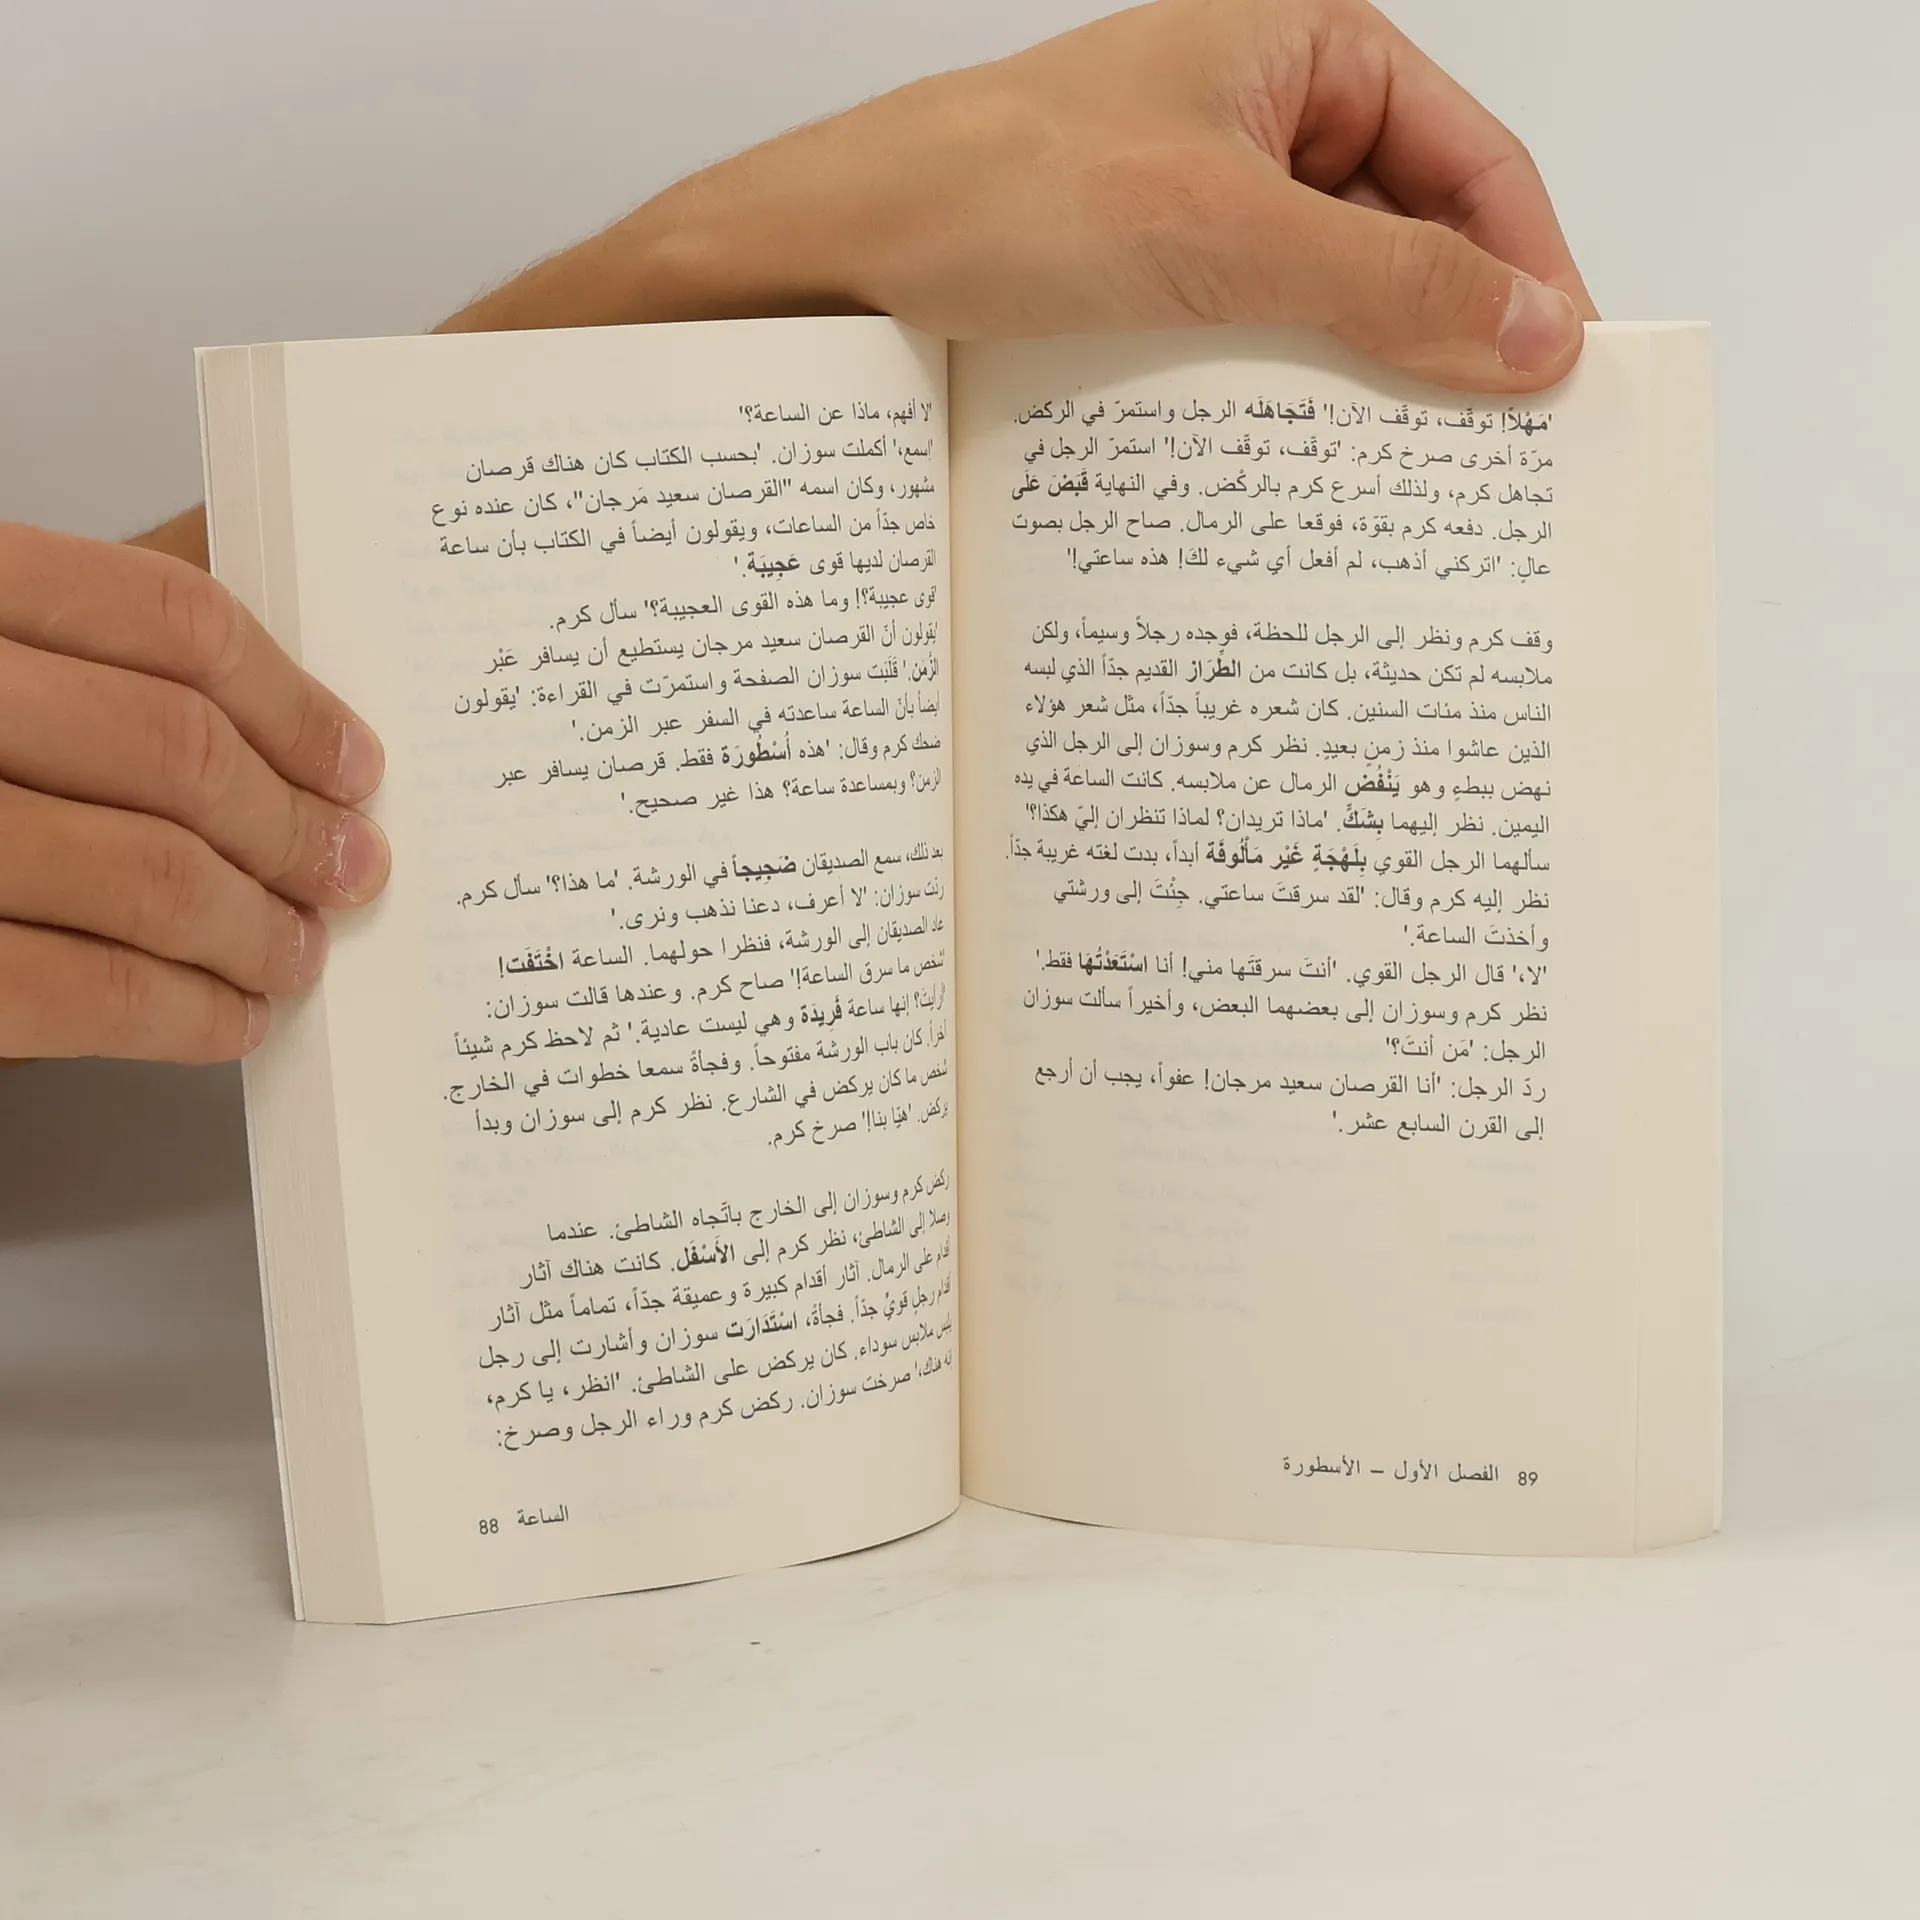 'لا أفهم، ماذا عن الساعة؟'
'إسمع،' أكملت سوزان. 'بحسب الكتاب كان هناك قرصان
مشهور، وكان اسمه "القرصان سعيد مَرجان"، كان عنده نوع
خاص جدّاً من الساعات، ويقولون أيضاً في الكتاب بأن ساعة
القرصان لديها قوى عَجِيبَة.'
'قوى عجيبة؟! وما هذه القوى العجيبة؟' سأل كرم.
'يقولون أنّ القرصان سعيد مرجان يستطيع أن يسافر عَبْر
الزَّمَن.' قَلَبَت سوزان الصفحة واستمرّت في القراءة: 'يقولون
أيضاً بأنّ الساعة ساعدته في السفر عبر الزمن.'
ضحك كرم وقال: 'هذه أُسْطُورَة فقط. قرصان يسافر عبر
الزمن؟ وبمساعدة ساعة؟ هذا غير صحيح.'
بعد ذلك، سمع الصديقان ضَجِيجاً في الورشة. 'ما هذا؟' سأل كرم.
ردّت سوزان: 'لا أعرف، دعنا نذهب ونرى.'
عاد الصديقان إلى الورشة، فنظرا حولهما. الساعة اخْتَفَت!
'شخص ما سرق الساعة!' صاح كرم. وعندها قالت سوزان:
'أرأيتَ؟ إنها ساعة فَرِيدَة وهي ليست عادية.' ثم لاحظ كرم شيئاً
آخراً. كان باب الورشة مفتوحاً. وفجأةً سمعا خطوات في الخارج.
شخص ما كان يركض في الشارع. نظر كرم إلى سوزان وبدأ
يركض. 'هيّا بنا!' صرخ كرم.
ركض كرم وسوزان إلى الخارج باتّجاه الشاطئ. عندما
وصلا إلى الشاطئ، نظر كرم إلى الأَسْفَل. كانت هناك آثار
أقدام على الرمال. آثار أقدام كبيرة وعميقة جدّاً، تماماً مثل آثار
أقدام رجلٍ قويٍّ جدّاً. فجأةً، اسْتَدَارَت سوزان وأشارت إلى رجل
يلبس ملابس سوداء. كان يركض على الشاطئ. 'انظر، يا كرم،
إنه هناك،' صرخت سوزان. ركض كرم وراء الرجل وصرخ:
88 الساعة
'مَهْلاً! توقَّف، توقَّف الآن!' فَتَجَاهَلَه الرجل واستمرّ في الركض.
مرّة أخرى صرخ كرم: 'توقَّف، توقَّف الآن!' استمرّ الرجل في
تجاهل كرم، ولذلك أسرع كرم بالركْض. وفي النهاية قَبَضَ عَلَى
الرجل. دفعه كرم بقوّة، فوقعا على الرمال. صاح الرجل بصوت
عالٍ: 'اتركني أذهب، لم أفعل أي شيء لكَ! هذه ساعتي!'
وقف كرم ونظر إلى الرجل للحظة، فوجده رجلاً وسيماً، ولكن
ملابسه لم تكن حديثة، بل كانت من الطِّرَاز القديم جدّاً الذي لبسه
الناس منذ مئات السنين. كان شعره غريباً جدّاً، مثل شعر هؤلاء
الذين عاشوا منذ زمنٍ بعيدٍ. نظر كرم وسوزان إلى الرجل الذي
نهض ببطءٍ وهو يَنْفُض الرمال عن ملابسه. كانت الساعة في يده
اليمين. نظر إليهما بِشَكٍّ. 'ماذا تريدان؟ لماذا تنظران إليّ هكذا؟'
سألهما الرجل القوي بِلَهْجَةٍ غَيْر مَأْلُوفَة أبداً، بدت لغته غريبة جدّاً.
نظر إليه كرم وقال: 'لقد سرقتَ ساعتي. جِئْتَ إلى ورشتي
وأخذتَ الساعة.'
'لا،' قال الرجل القوي. 'أنتَ سرقتَها مني! أنا اسْتَعَدْتُهَا فقط.'
نظر كرم وسوزان إلى بعضهما البعض، وأخيراً سألت سوزان
الرجل: 'مَن أنتَ؟'
ردّ الرجل: 'أنا القرصان سعيد مرجان! عفواً، يجب أن أرجع
إلى القرن السابع عشر.'
89 الفصل الأول – الأسطورة